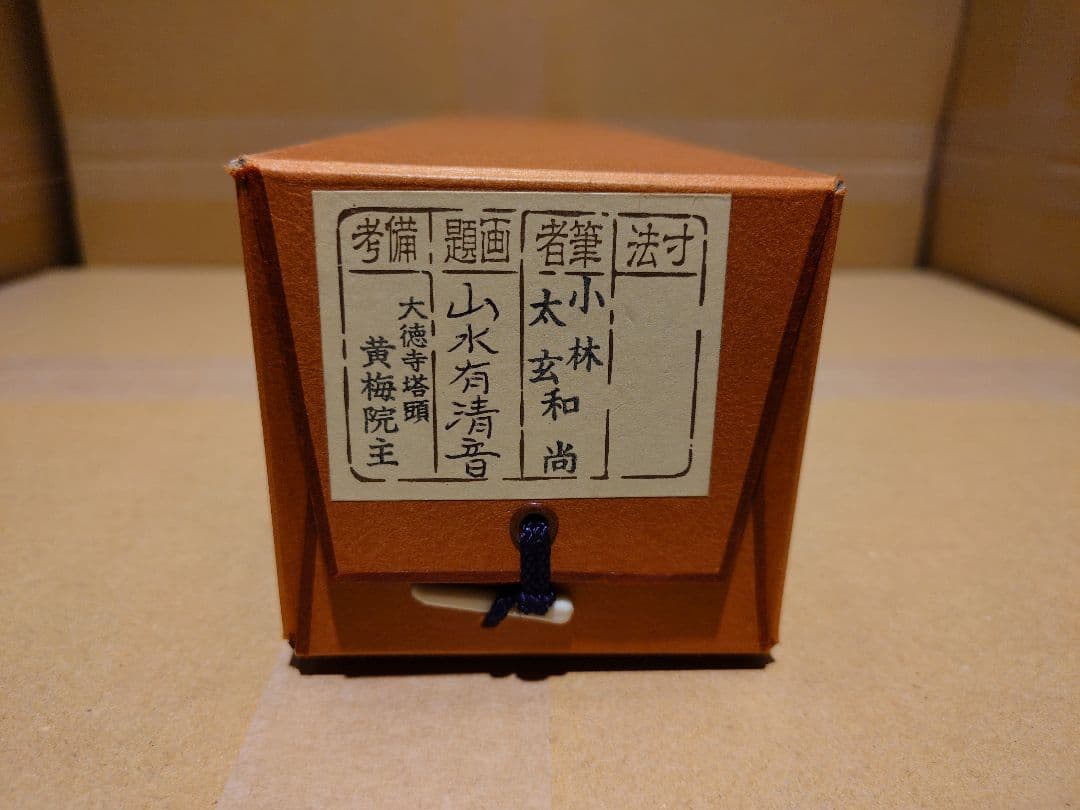 寸法
筆者
小林
太玄和尚
画題
山水有清音
備考
大徳寺塔頭
黄梅院主